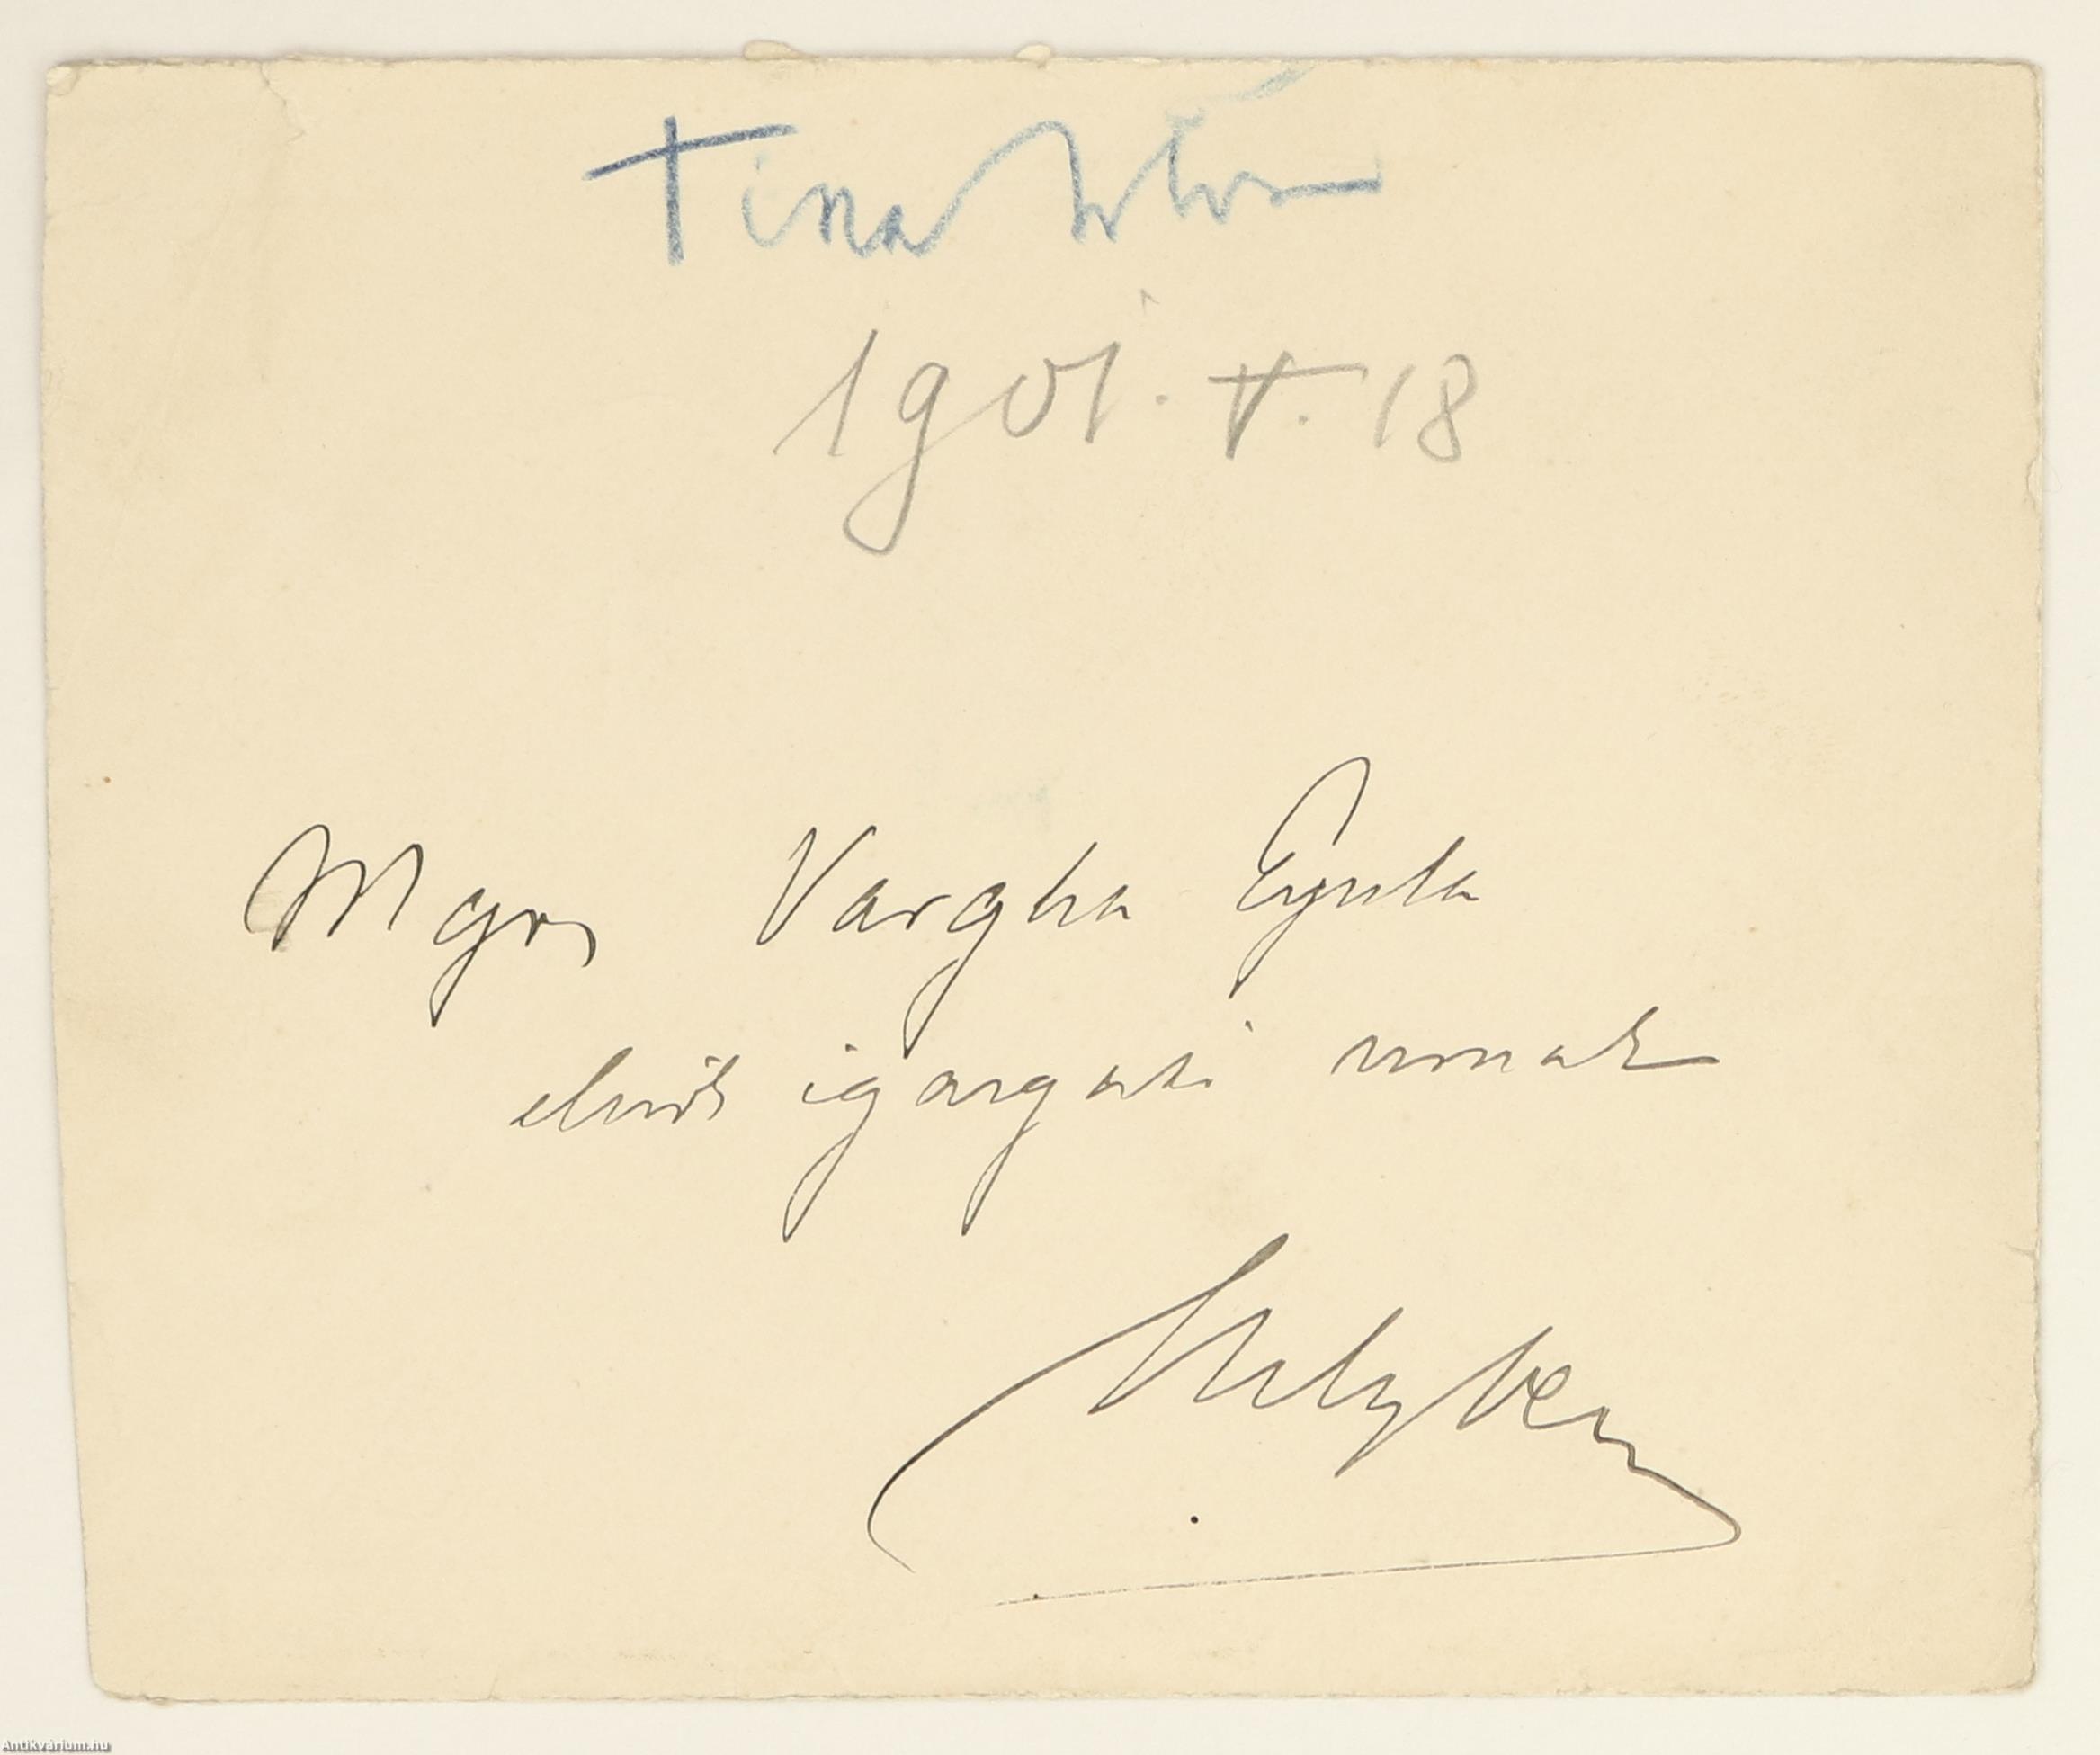 Tisza István
1901. V. 18
Mgos Vargha Gyula
elnök igazgató urnak
Helyben
Antikvárium.hu